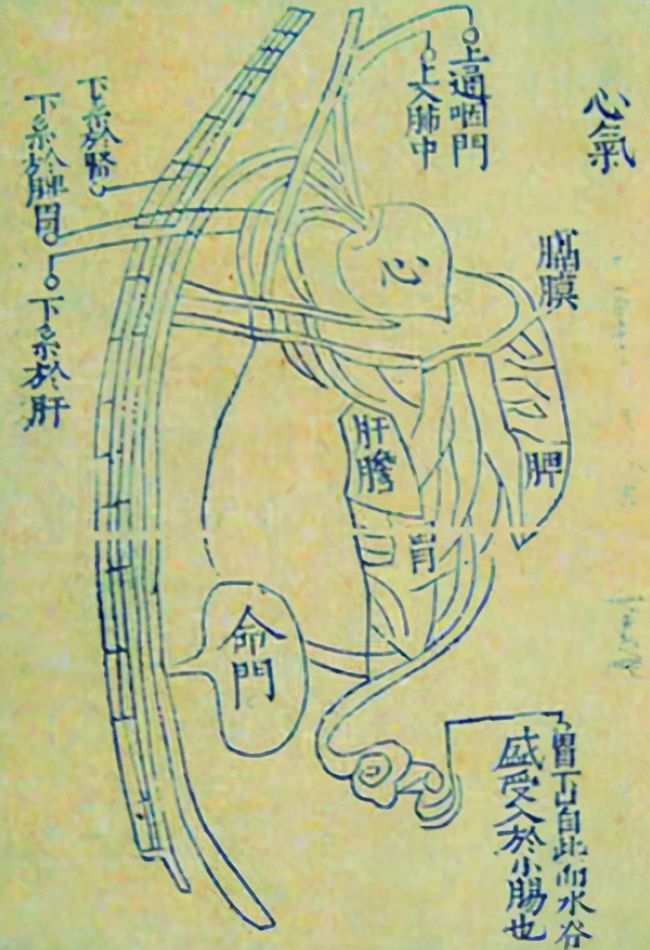 心氣
上通咽門
上入肺中
膈膜
心
下系於腎
下系於脾胃
下系於肝
肝膽
脾
胃
命門
胃下口自此而水谷
盛受入於小腸也